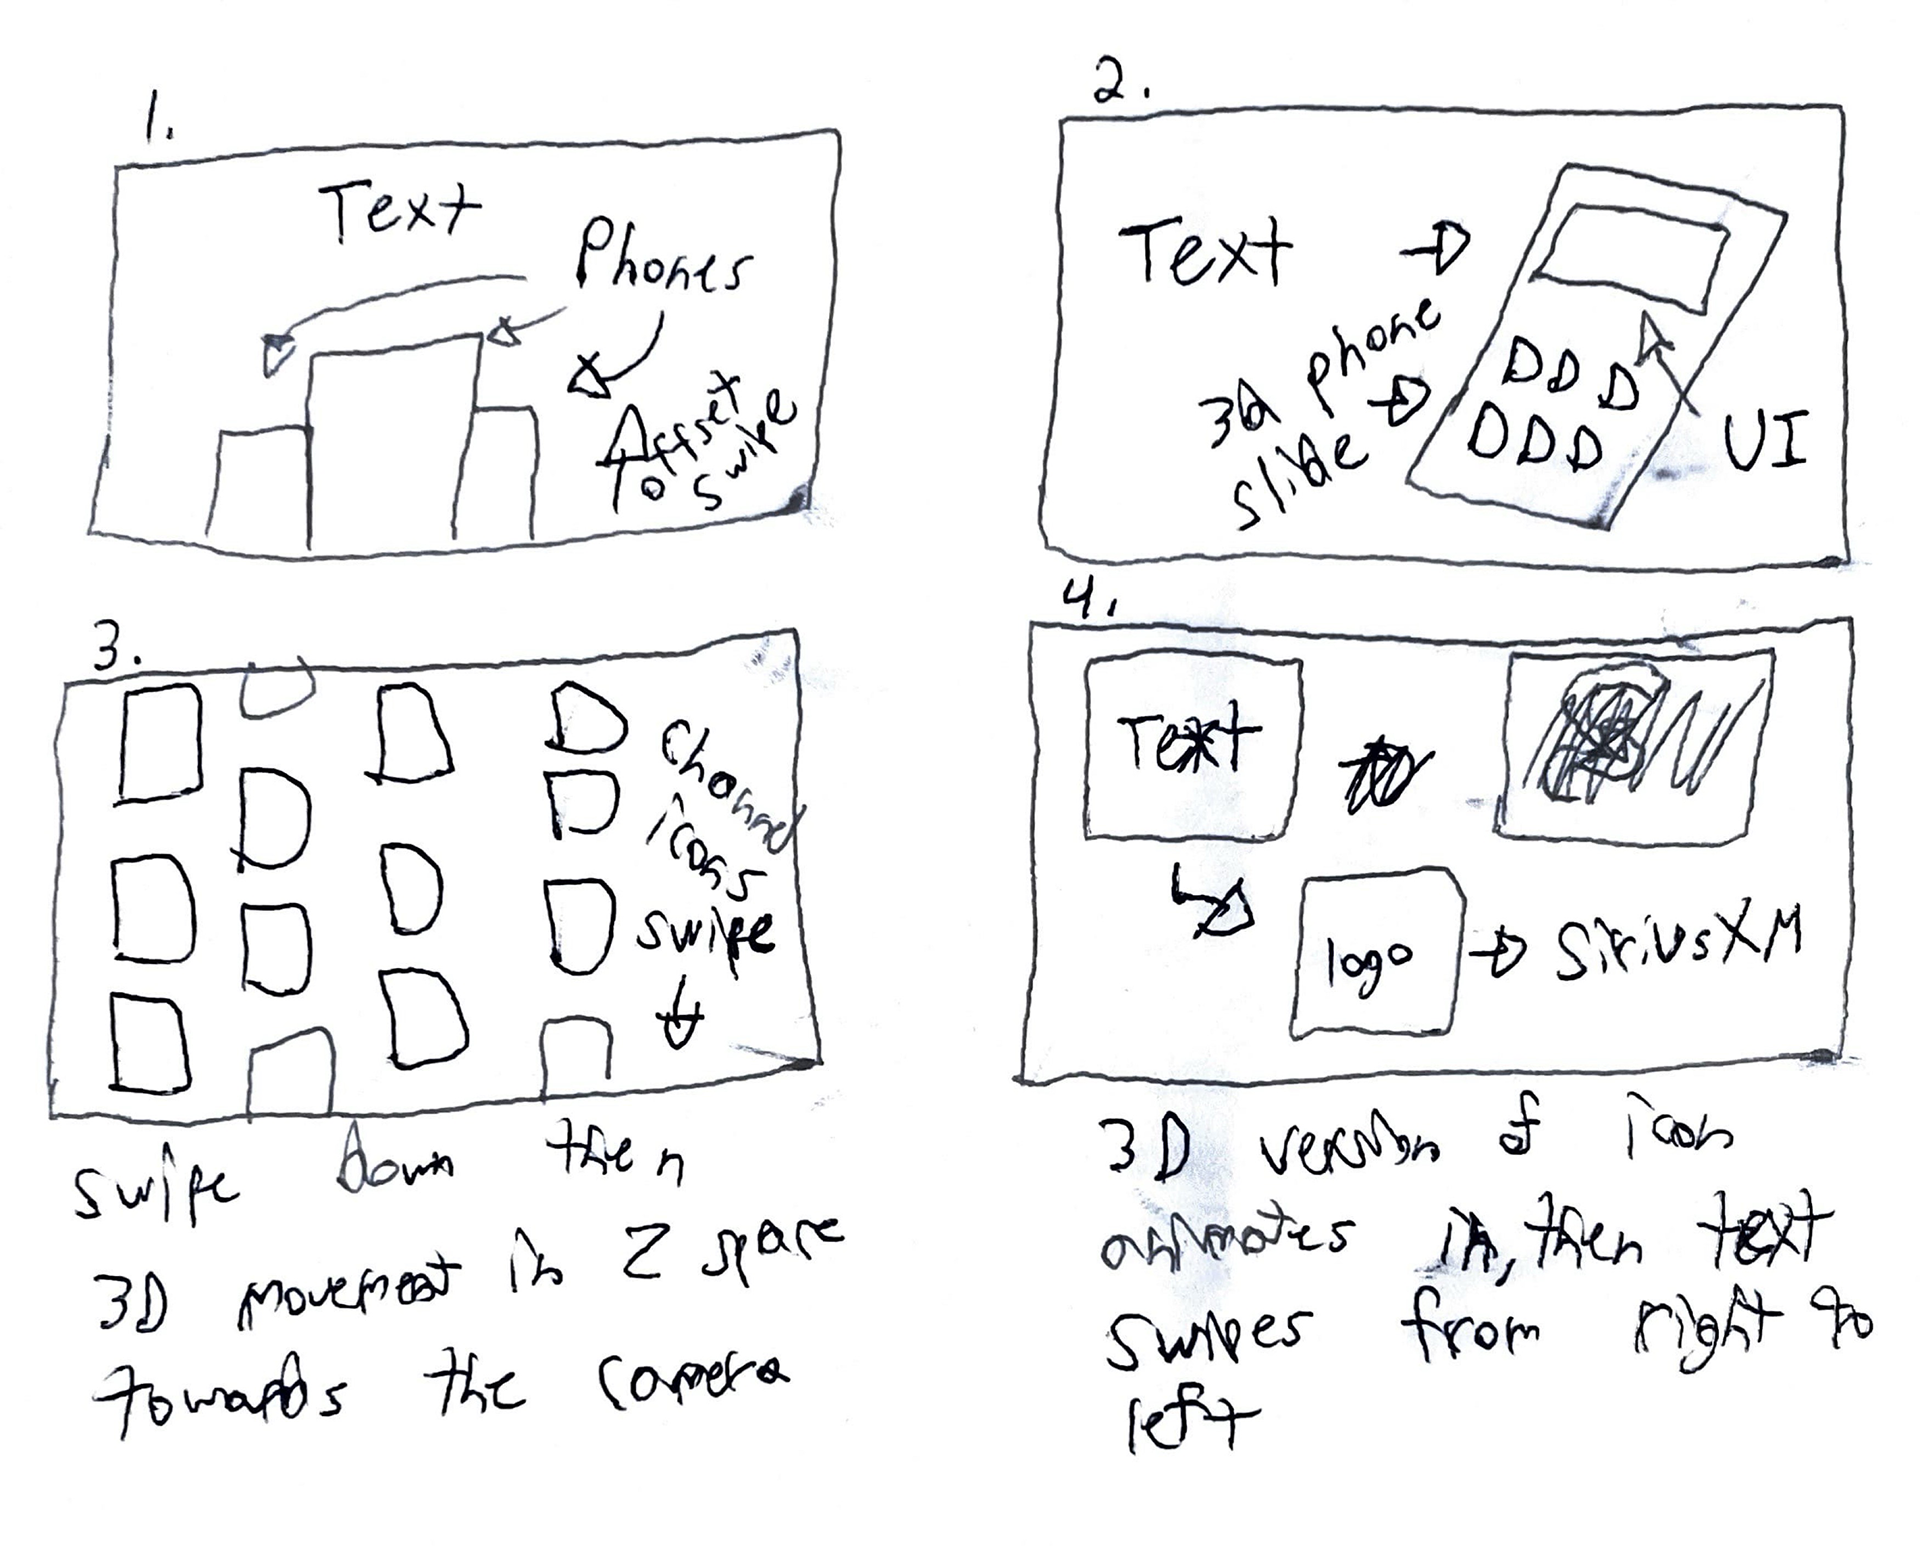 1.
Text
Phones
Offset
swipe
2.
Text
3d phone
slide
UI
3.
Channel
icons
swipe
swipe down then
3D movement in Z space
towards the camera
4.
Text
logo
SiriusXM
3D version of icon
animates in, then text
swipes from right to
left